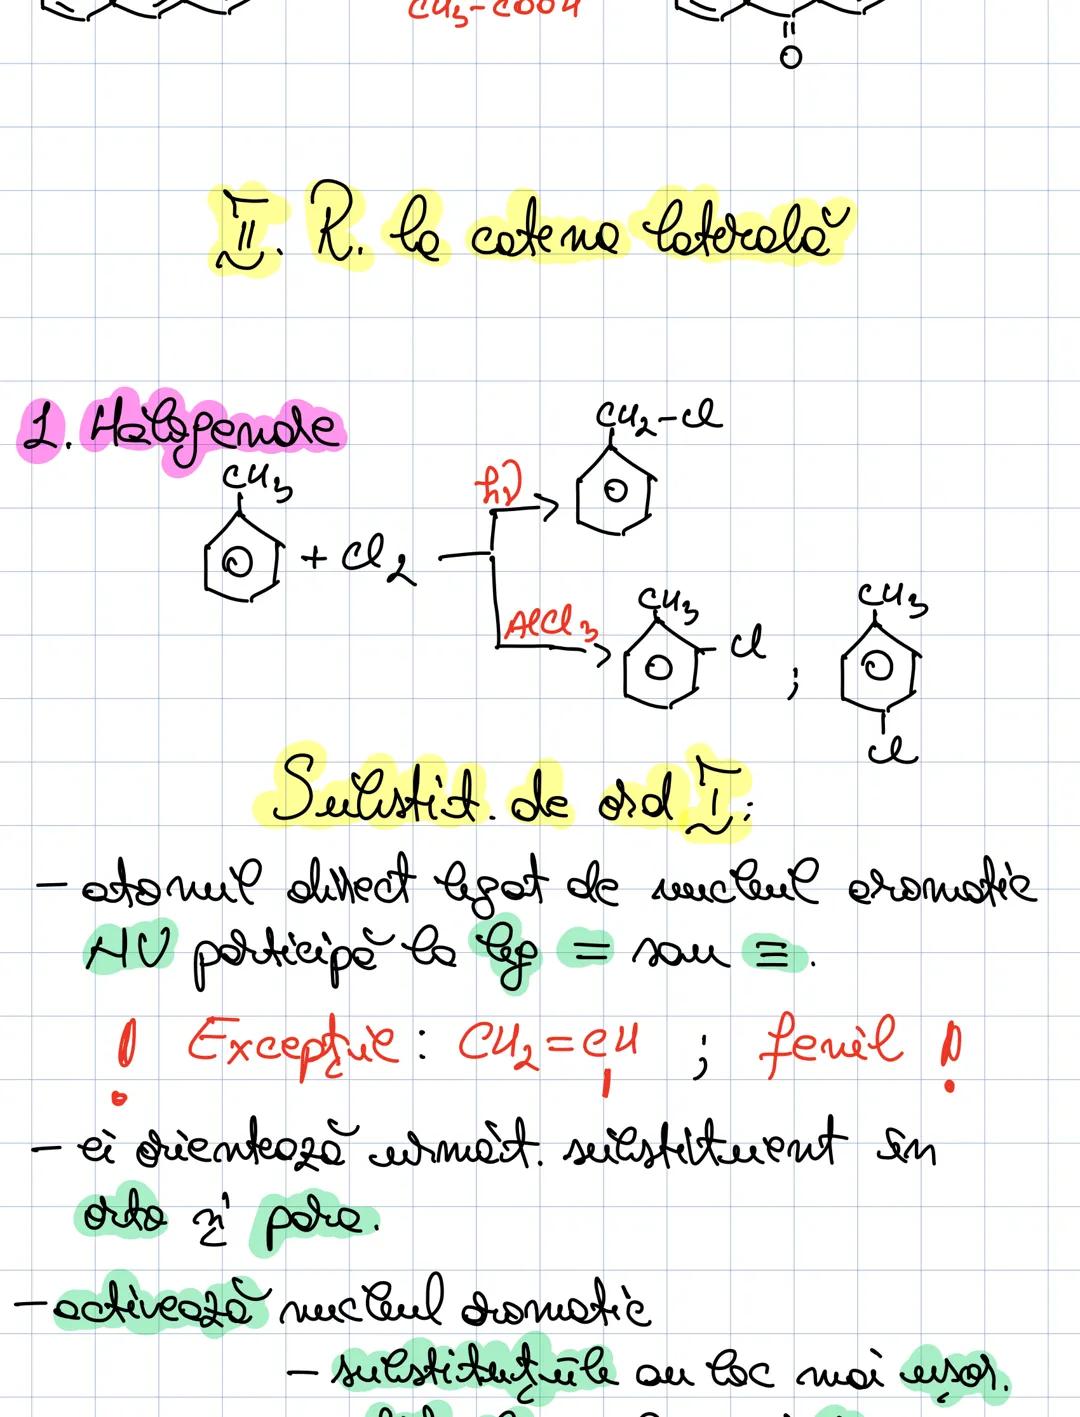 CH3-COOH
O
II. R. la catena laterală
1. Halogenare
CH2-Cl
CH3
hν
+ Cl2
CH3
CH3
AlCl3
Cl
;
Cl
Substit. de ord I:
- atomul direct legat de nucleul aromatic
NU participă la leg = sau ≡.
! Excepție: CH2=CH ; fenil !
- ei orientează următ. substituent în
orto și para.
- activează nucleul aromatic
- substituțiile au loc mai ușor.